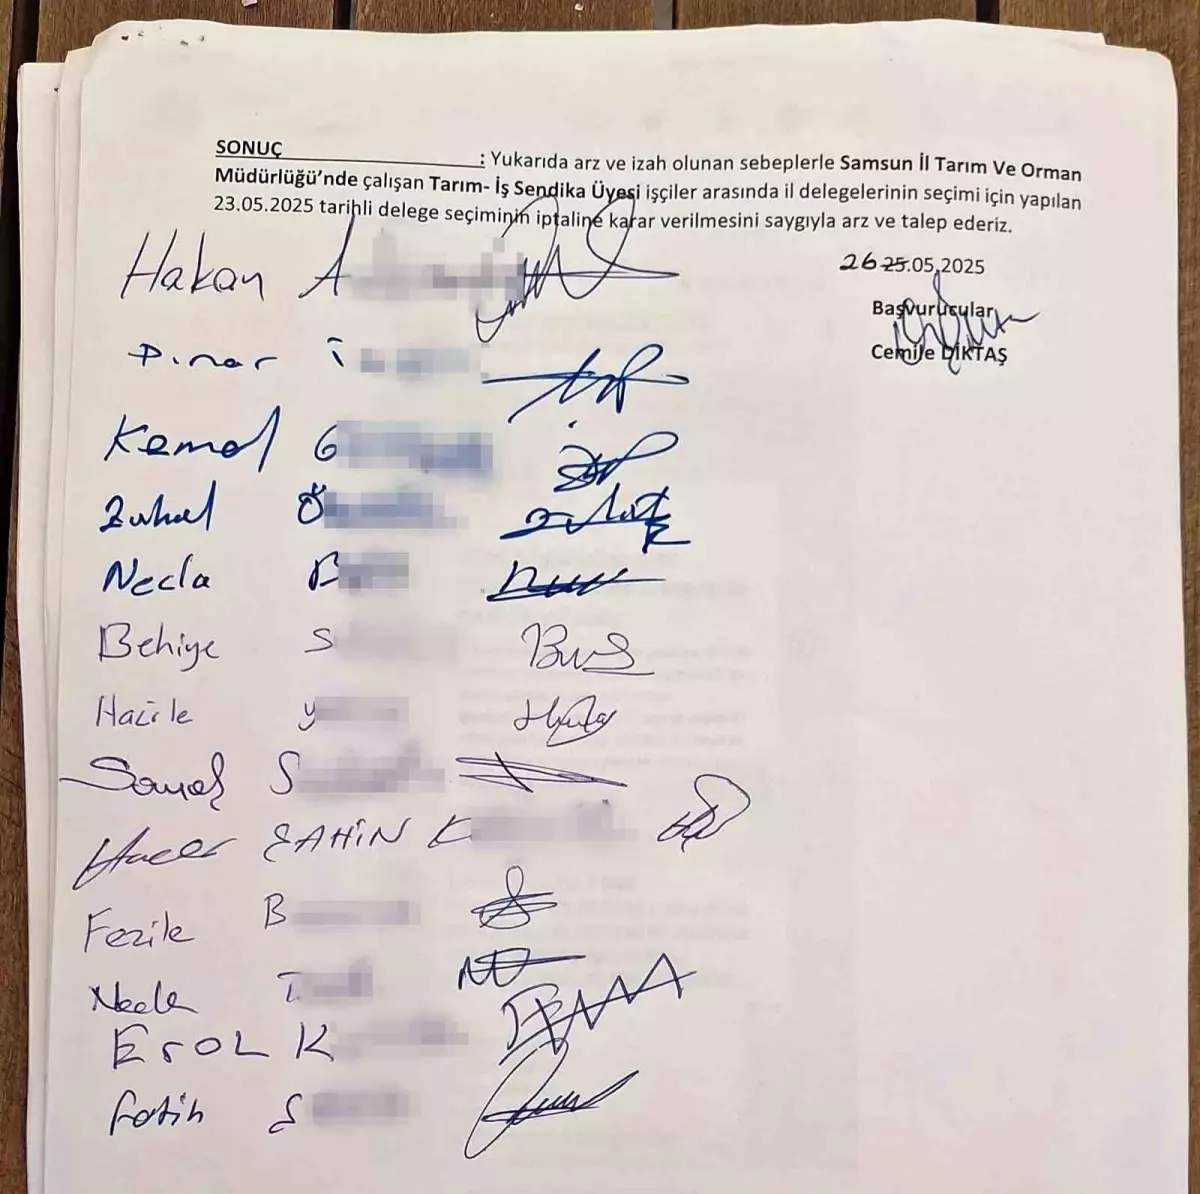 SONUÇ : Yukarıda arz ve izah olunan sebeplerle Samsun İl Tarım Ve Orman
Müdürlüğü'nde çalışan Tarım- İş Sendika Üyesi işçiler arasında il delegelerinin seçimi için yapılan
23.05.2025 tarihli delege seçiminin iptaline karar verilmesini saygıyla arz ve talep ederiz.
26 25.05.2025
Başvurucular
Cemile DİKTAŞ
Hakan A
Pınar İ
Kemal G
Zuhal Ö
Necla B
Behiye S
Hacile Y
S
Hacer ŞAHİN K
Fezile B
T
EROL K
Fatih S